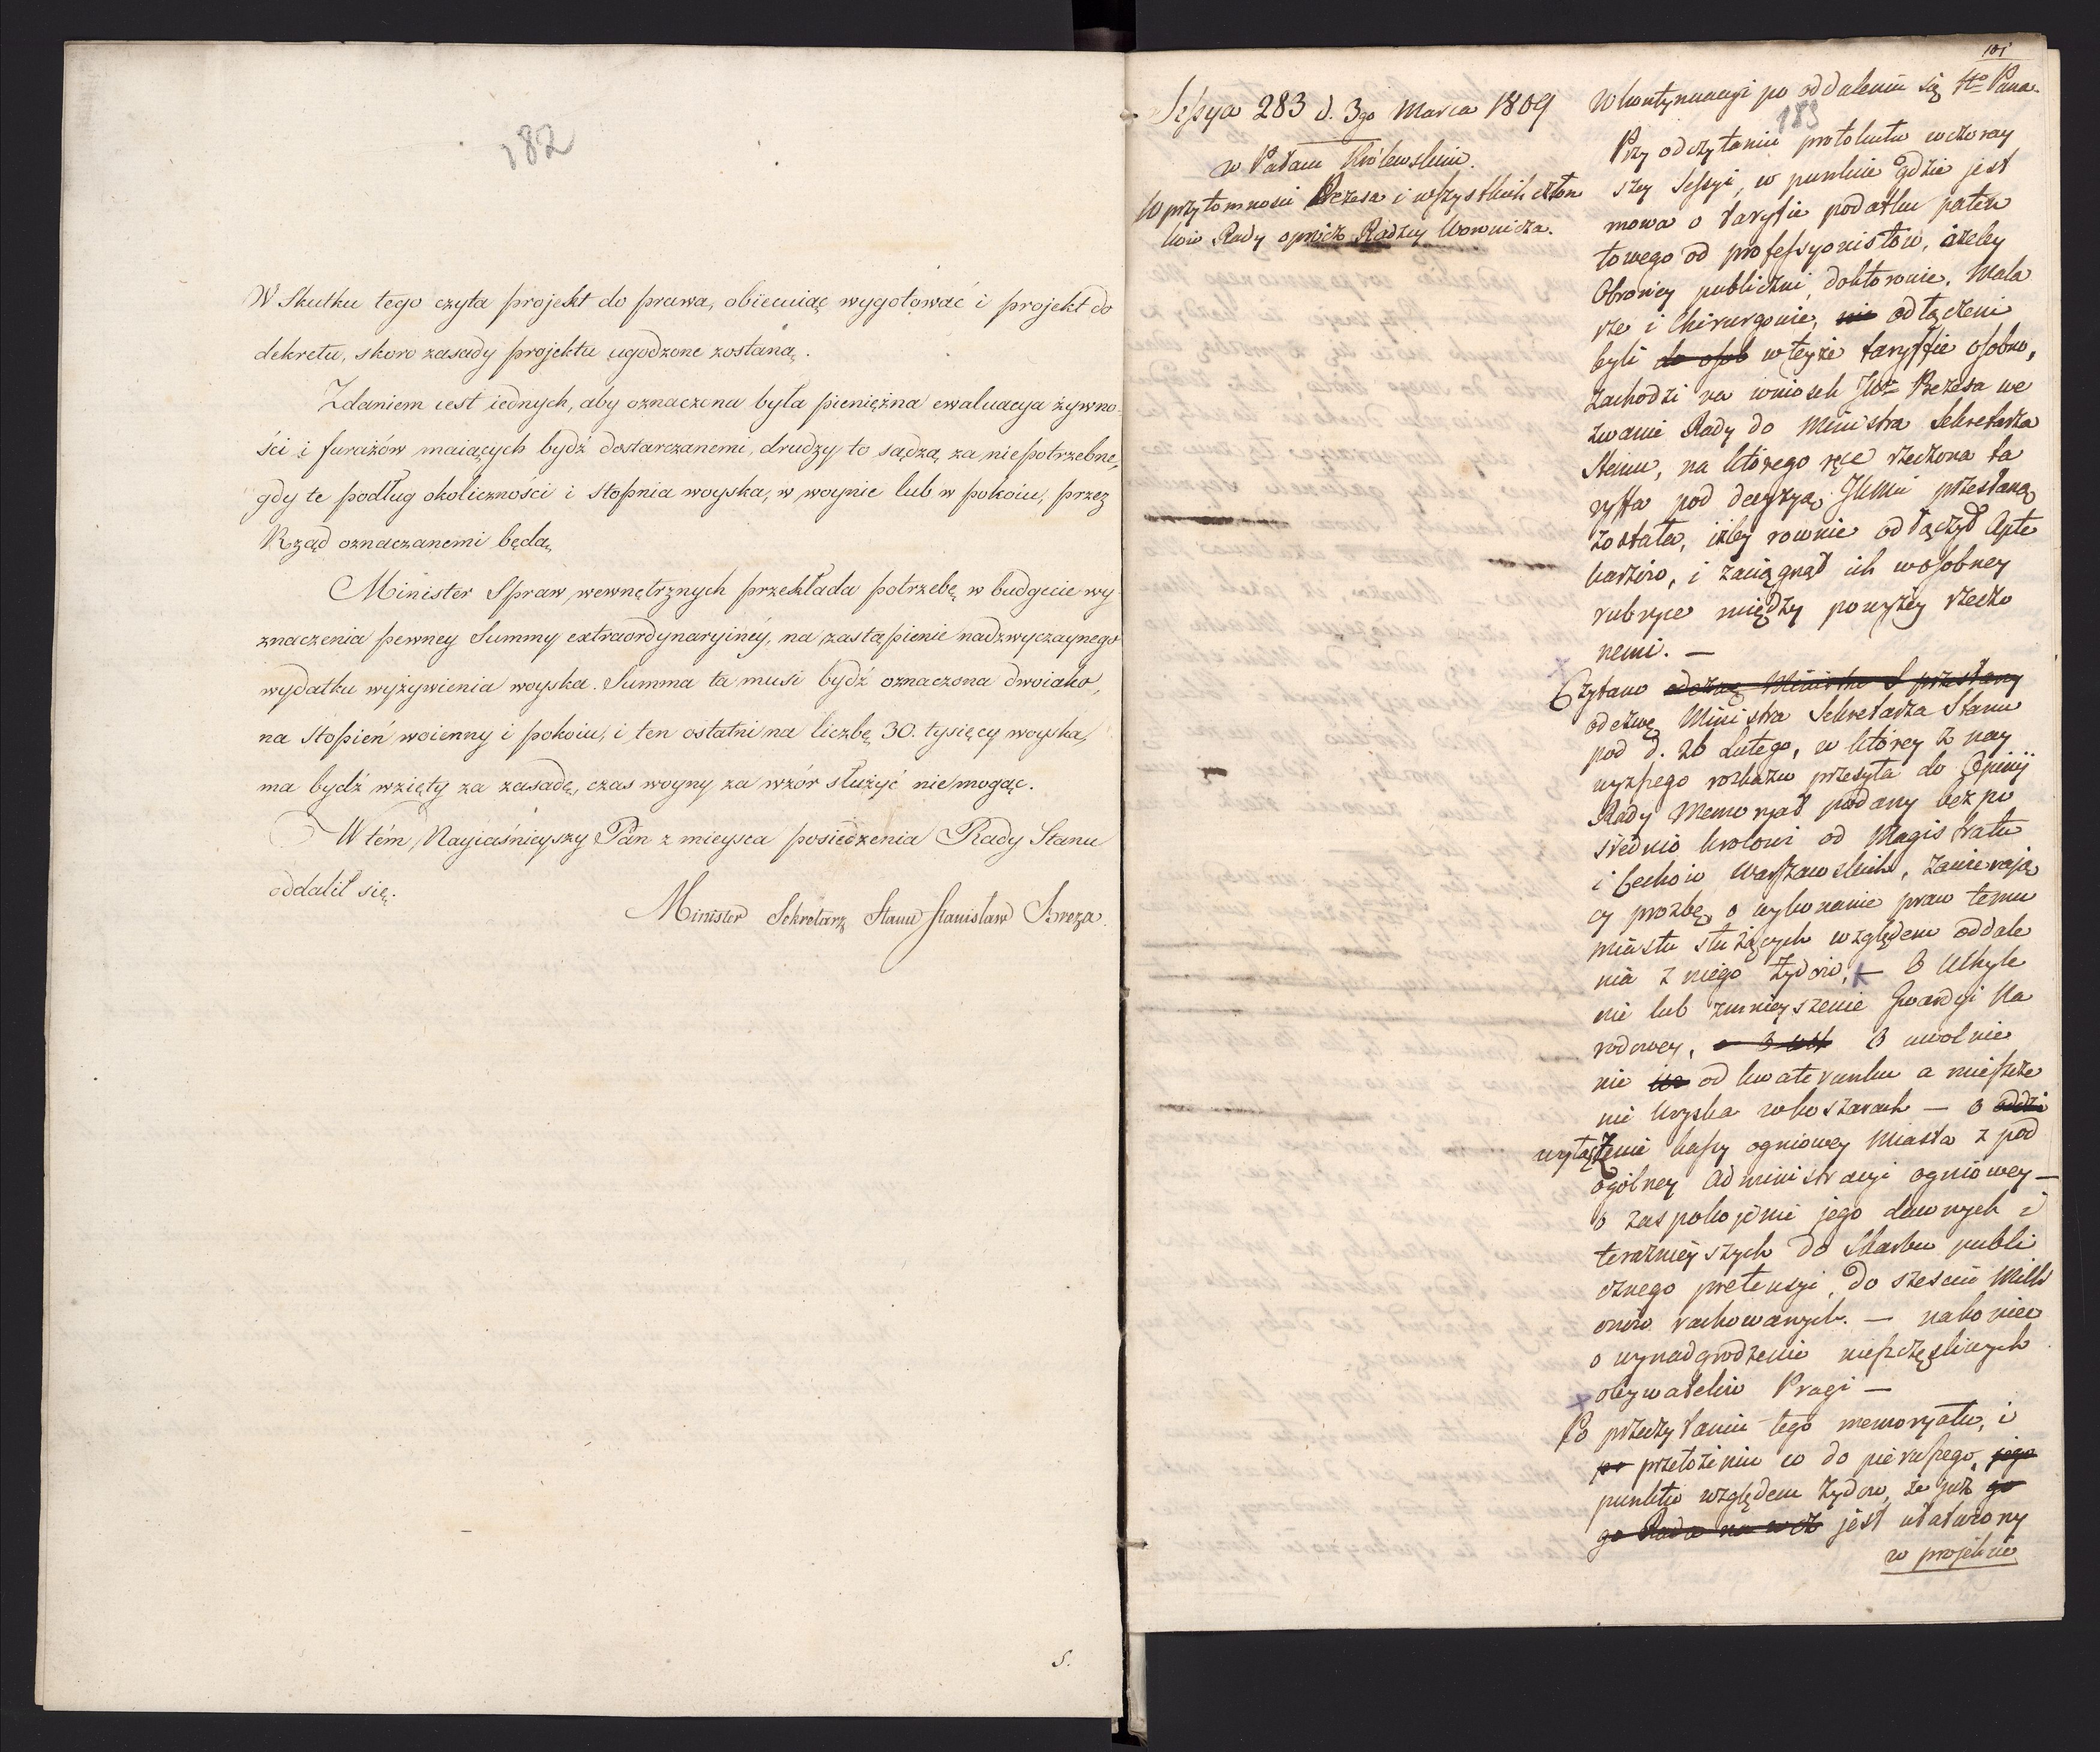 182
W Skutku tego czyta projekt do prawa, obiecuiąc wygotować i projekt do
dekretu, skoro zasady projektu ugodzone zostaną.
Zdaniem iest iednych, aby oznaczona była pieniężna ewaluacya żywno-
ści i furażów maiących bydź dostarczanemi, drudzy to sądzą za niepotrzebne,
gdy te podług okoliczności i stopnia woyska, w woynie lub w pokoiu, przez
Rząd oznaczanemi będą,
Minister Spraw wewnętrznych przekłada potrzebę w budgecie wy-
znaczenia pewney Summy extraordynaryiney, na zastąpienie nadzwyczaynego
wydatku wyżywienia woyska. Summa ta musi bydź oznaczona dwoiako,
na stopień woienny i pokoiu, i ten ostatni na liczbę 30. tysięcy woyska,
ma bydź wzięty za zasadę, czas woyny za wzór służyć nie mogąc.
W tém, Nayiaśnieyszy Pan z mieysca posiedzenia Rady Stanu
oddalił się.
Minister Sekretarz Stanu Stanisław Breza.
S.
181
183
Sessya 283 d. 3go Marca 1809
w Pałacu Królewskim.
W przytomności Prezesa i wszystkich człon
ków Rady oprócz Radzcy Woronicza.
W kontynuacyi po oddaleniu się Pana.
Przy odczytaniu protokułu wczoray
szey Sessyi, w punkcie gdzie jest
mowa o taryfie podatku paten
towego od professyonistów, ażeby
Obrońcy publiczni, doktorowie, Mala
rze i Chirurgowie, nie odłączeni
byli do osob w teyże taryffie osobno,
zachodzi na wniosek JWo Prezesa we
zwanie Rady do Ministra Sekretarza
Stanu, na którego ręce rzeczona ta
ryffa pod decyzyą JKMci przesłaną
została, iżby rownie odłączył Apte
karzów, i zaciągnął ich w osobney
rubryce między powyżey rzeczo
nemi. —
Czytano odezwę Ministra S przesłany
odezwę Ministra Sekretarza Stanu
pod d. 26 Lutego, w którey z nay
wyższego rozkazu przesyła do Opinij
Rady Memoryał podany bezpo
średnio Krolowi od Magistratu
i Cechow Warszawskich, zawierają
cy prozbę o wykonanie praw temu
miastu służących względem oddale
nia z niego Żydów, — O Uchyle
nie lub zmnieyszenie Gwardyi Na
rodowey, O uwolnie
nie od kwaterunku a mieszcze
nie Woyska w koszarach — o oddzi
wyłączenie kassy ogniowey Miasta z pod
ogólney Administracyi ogniowey —
o zaspokojenie jego dawnych i
teraznieyszych do Skarbu publi
cznego pretensyi, do sześciu Milli
onów rachowanych. — nakoniec
o wynadgrodzenie nieszczęśliwych
obywatelów Pragi —
Po przeczytaniu tego memoryału, i
po przełożeniu co do pierwszego, jego
punktu względem Żydow, że już go
go Rada na jest ułatwiony
w projekcie